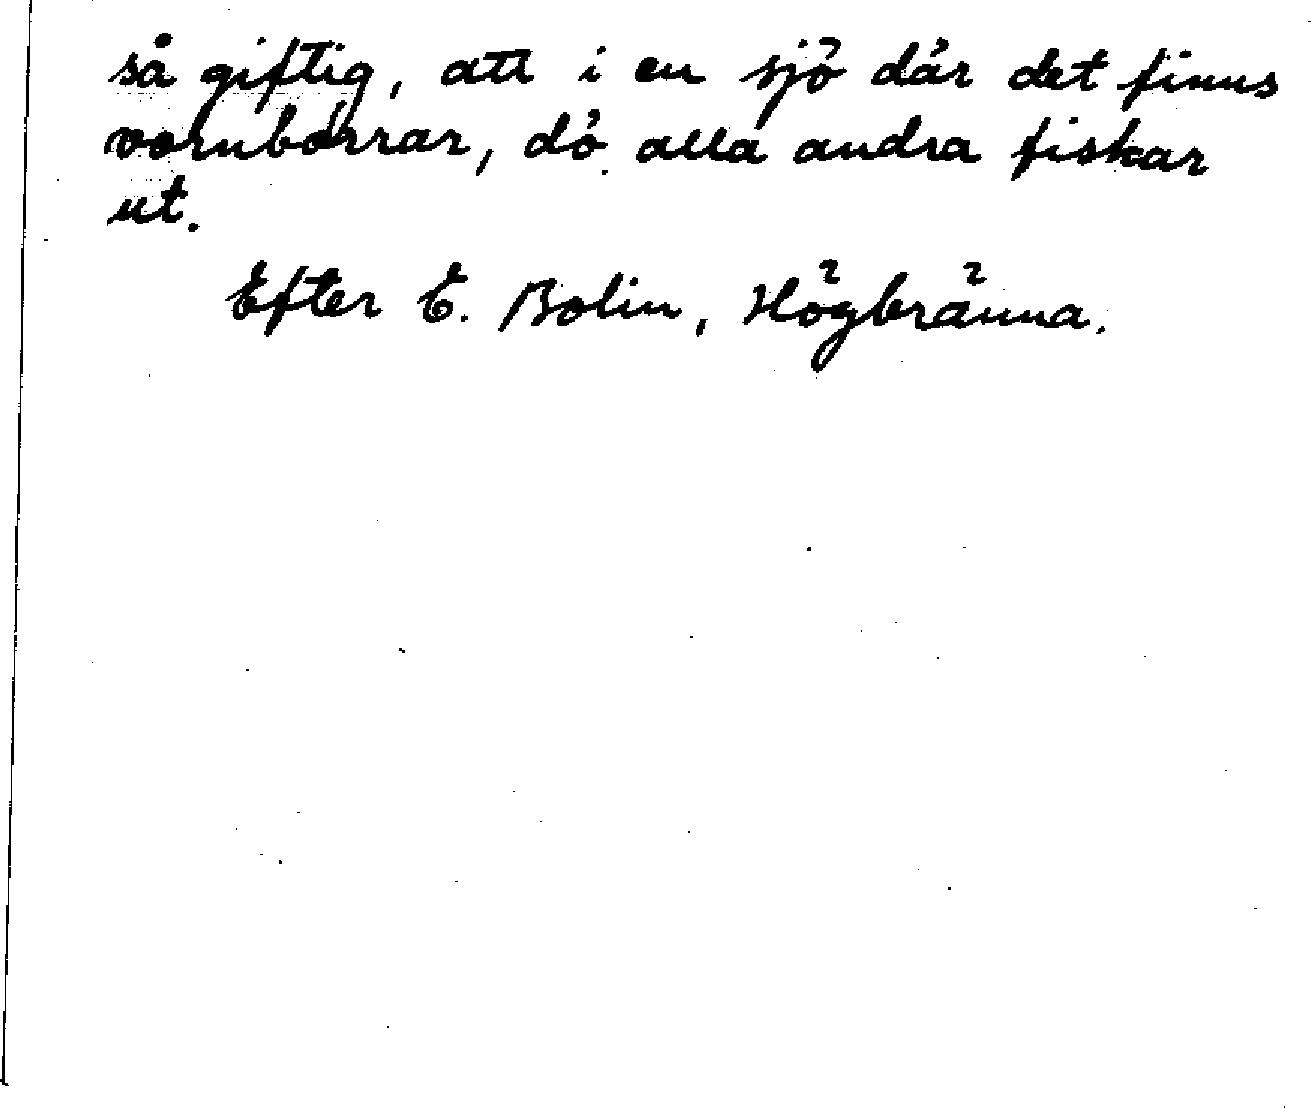 så giftig, att i en sjö där det finns
vornbórrar, dö alla andra fiskar
ut.
Efter E. Bolin, Högbränna.